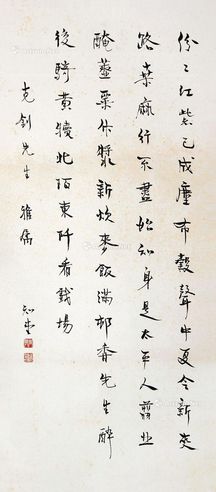 紛々紅紫已成塵布穀聲中夏令新夾
路桑麻行不盡始知身是太平人剪韭
醃虀粟作漿新炊麥飯滿邨香先生醉
後騎黃犢北陌東阡看戲場
克劍先生 雅屬
知堂